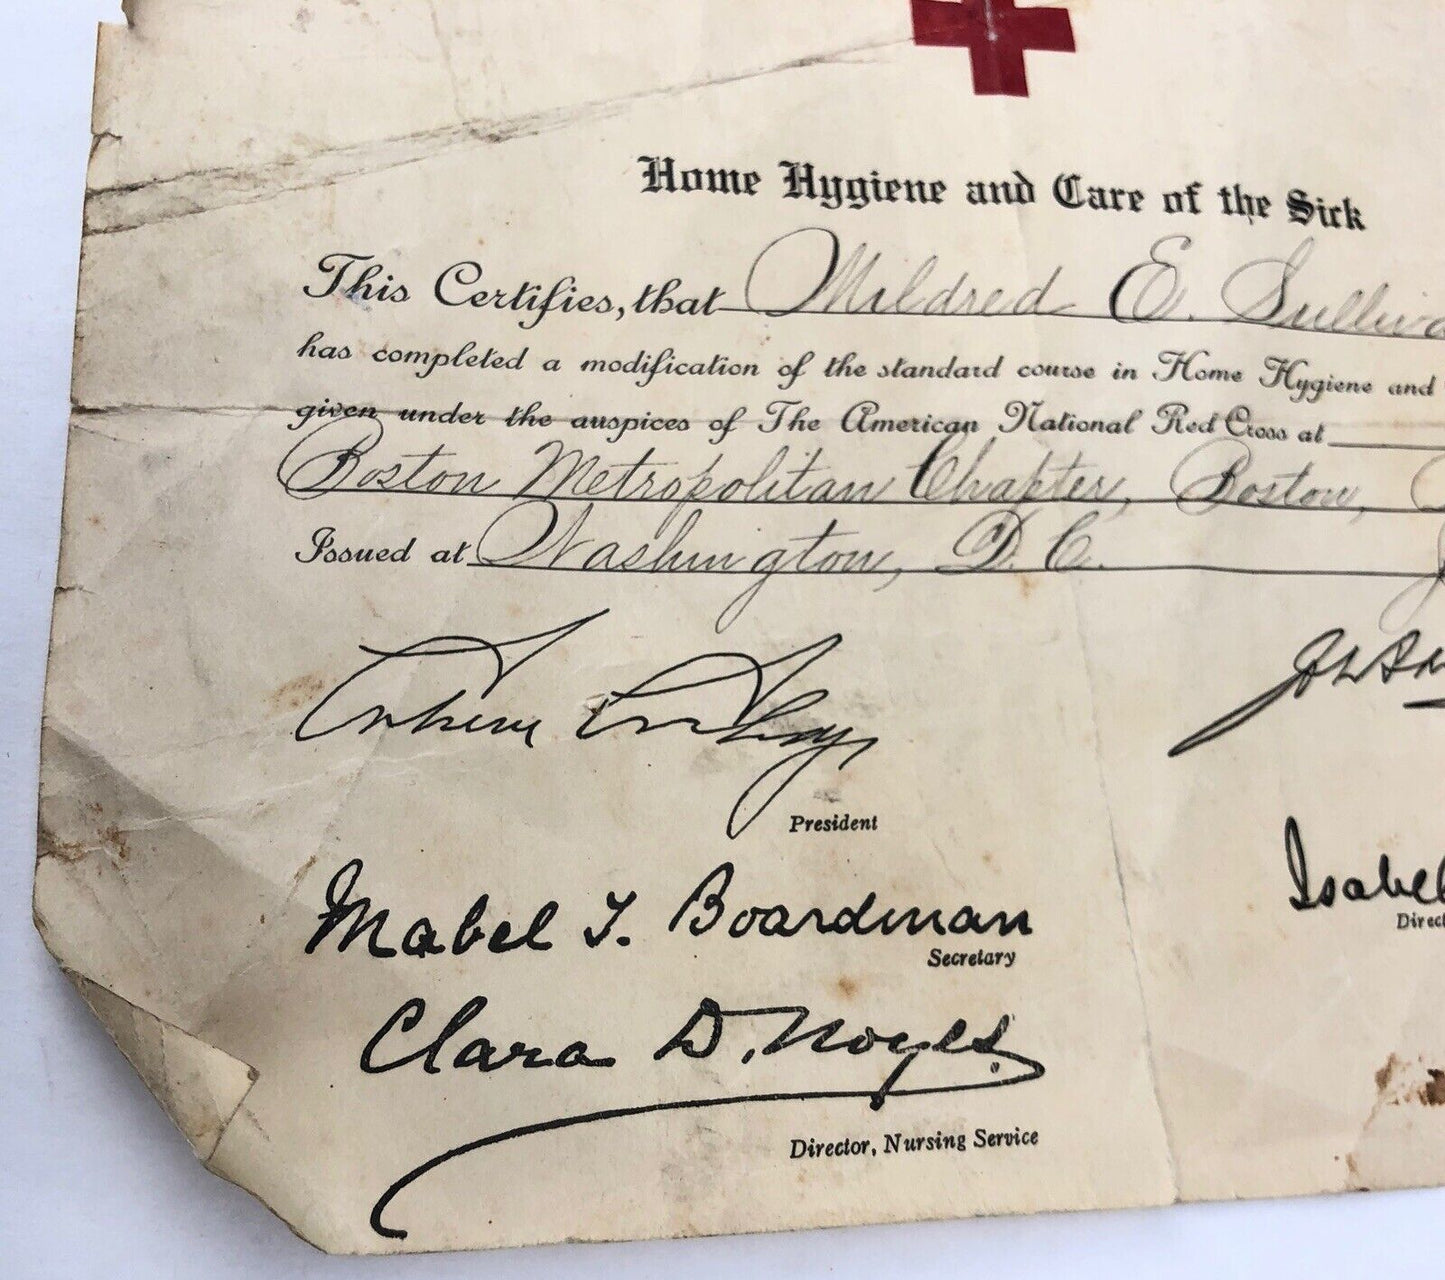 Home Hygiene and Care of the Sick
This Certifies, that Mildred E. Sulliva
has completed a modification of the standard course in Home Hygiene and
given under the auspices of The American National Red Cross at
Boston Metropolitan Chapter, Boston,
Issued at Washington, D. C.
Calvin Coolidge
President
Mabel T. Boardman
Isabel
Secretary
Direct
Clara D. Noyes
Director, Nursing Service